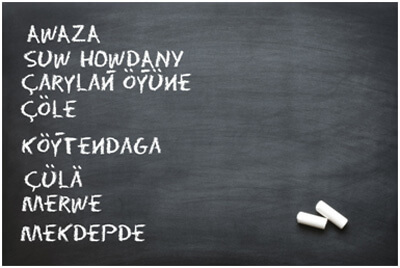 AWAZA
SUW HOWDANY
ÇARYLAŇ ÖÝÜNE
ÇÖLE
KÖÝTENDAGA
ÇÜLÄ
MERWE
MEKDEPDE